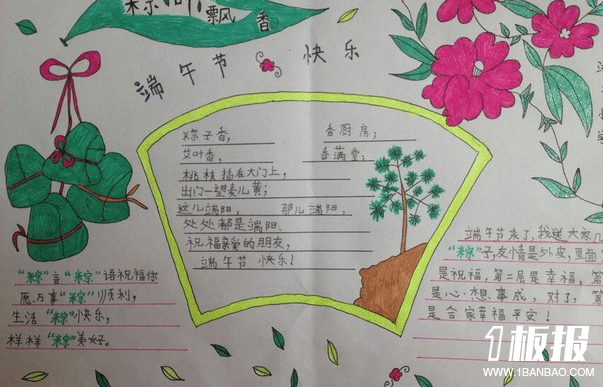 粽叶飘香
端午节 快乐
粽子香, 香厨房;
艾叶香, 香满堂;
桃枝插在大门上,
出门一望麦儿黄;
这儿端阳, 那儿端阳,
处处都是端阳.
祝福亲爱的朋友,
端午节 快乐!
“粽”言“粽”语祝福你
愿万事“粽”顺利,
生活“粽”快乐,
样样“粽”美好。
端午节来了,我送大家几
“粽”子,友情是外皮,里面
是祝福,第二层是幸福,第
是心想事成,对了,第
是合家幸福平安!
1板报
WWW.1BANBAO.COM